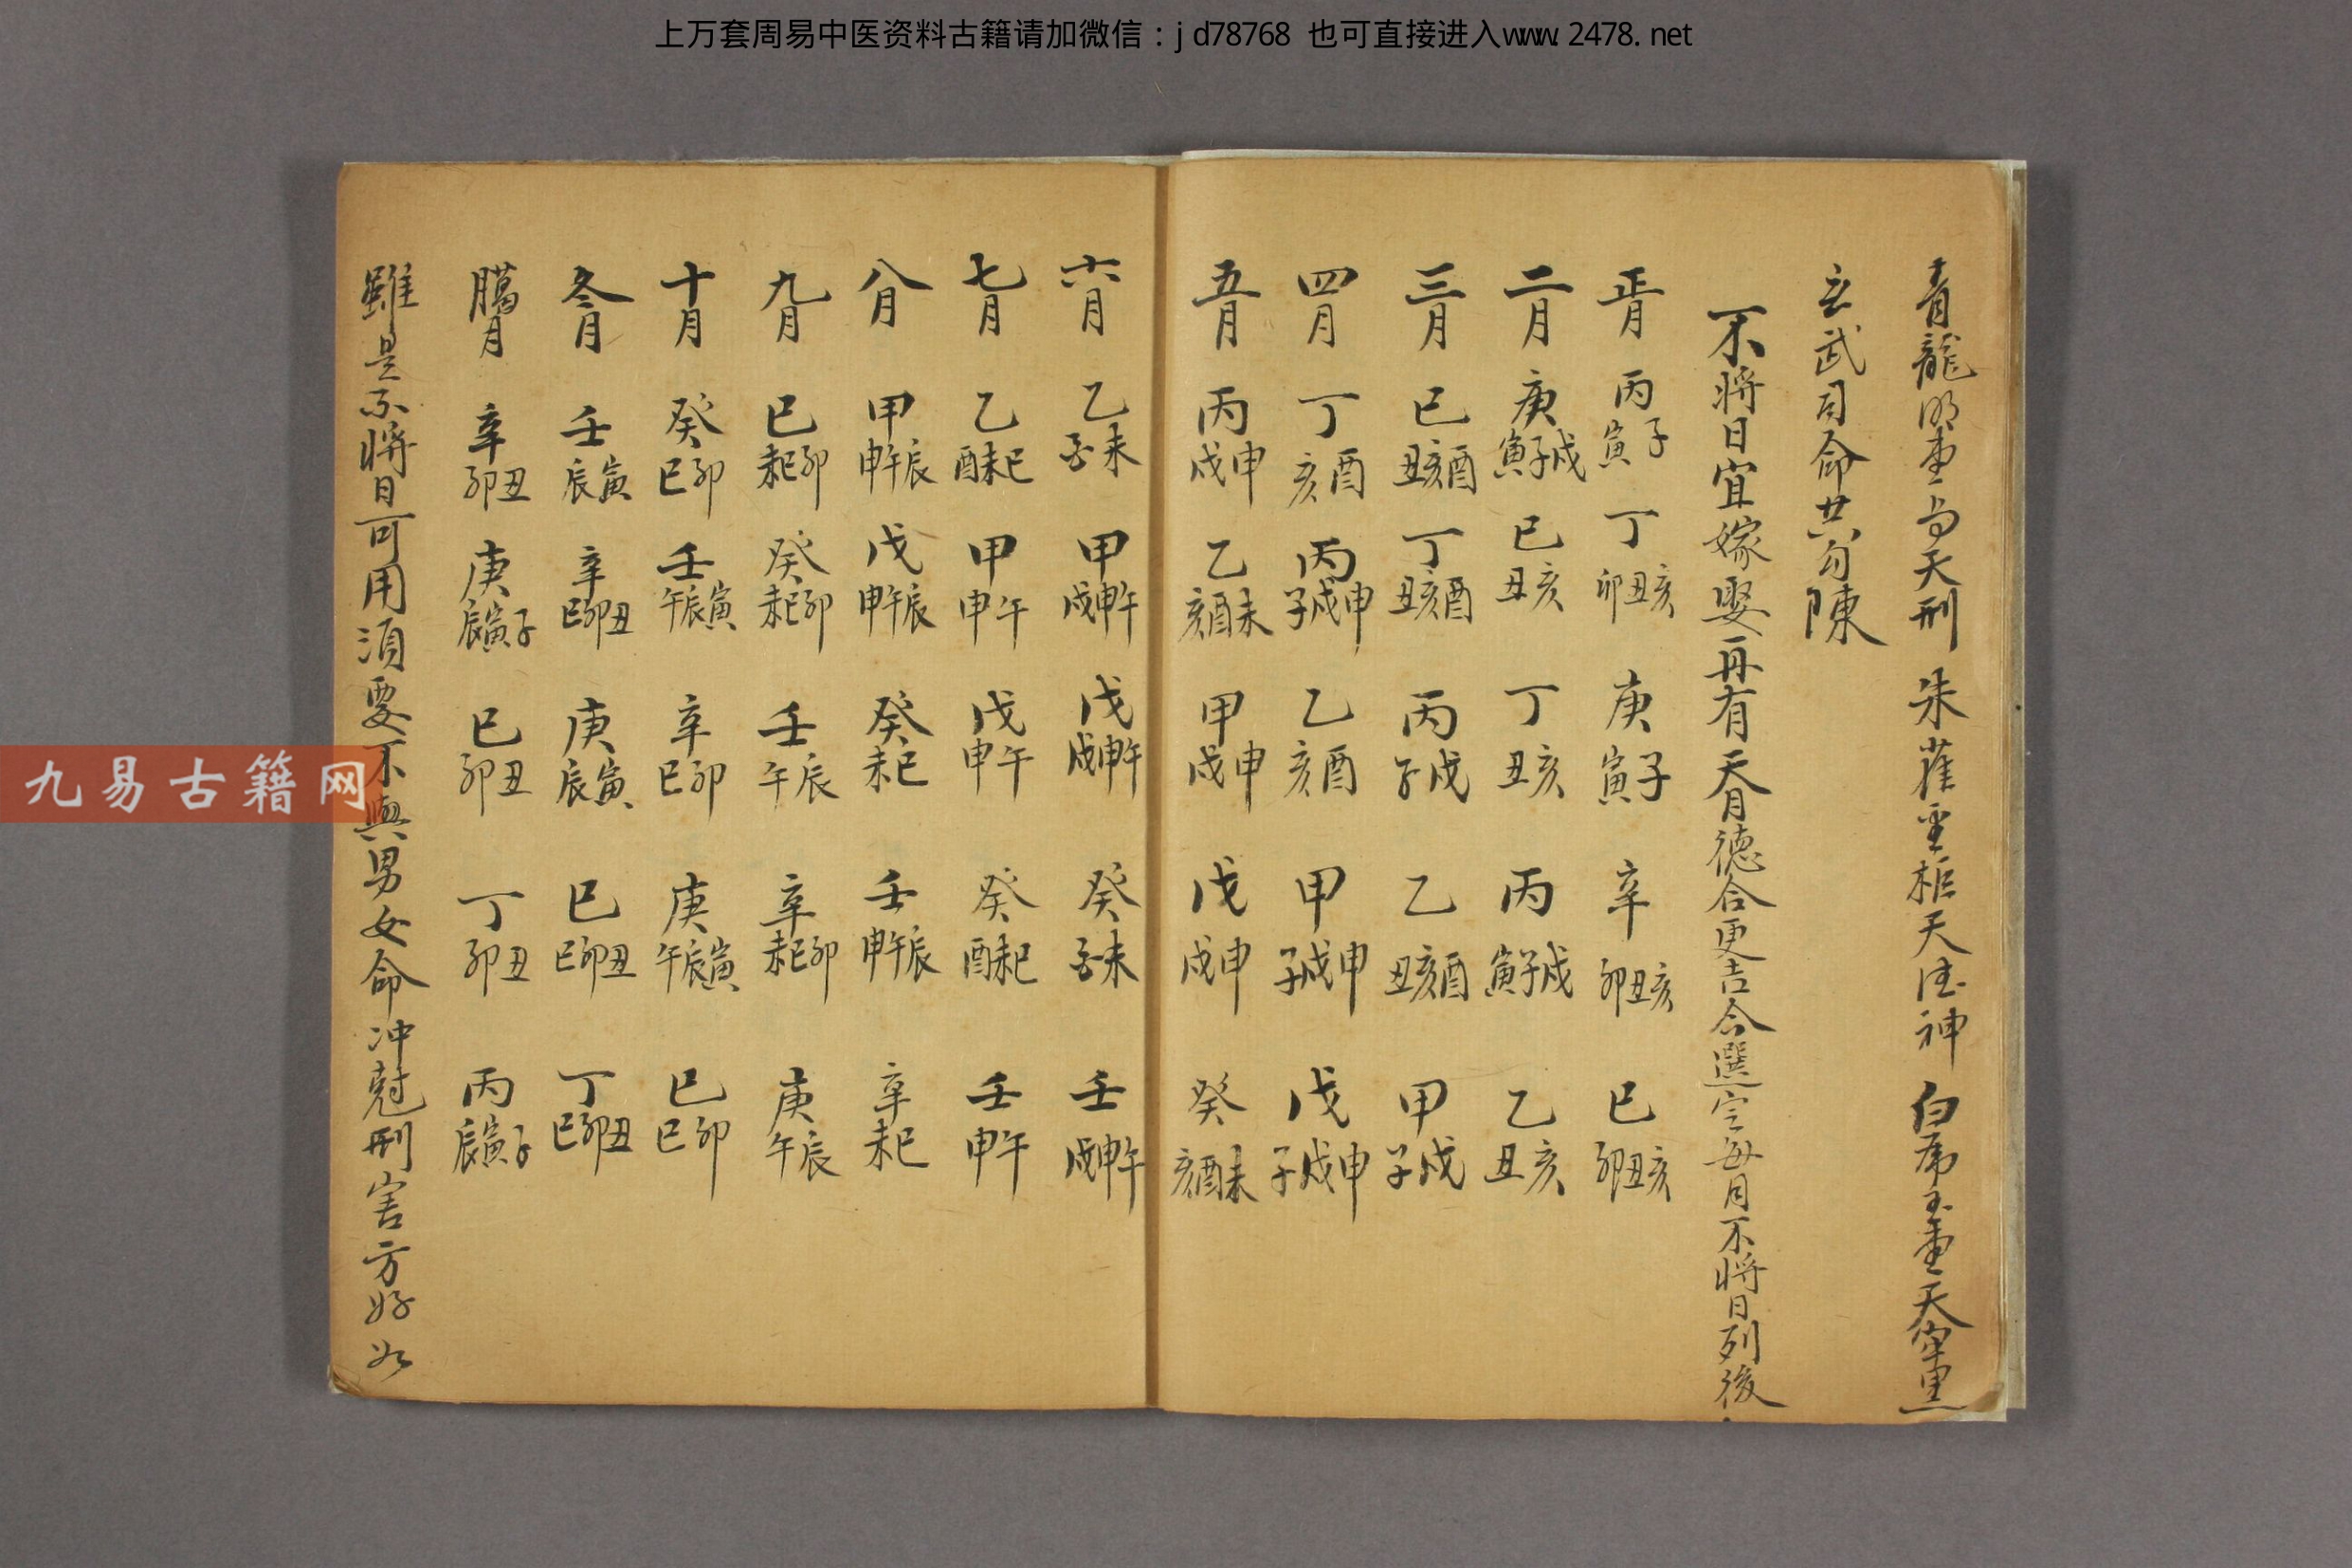 上万套周易中医资料古籍请加微信：jd78768 也可直接进入www.2478.net
青龍明堂与天刑 朱雀金柜天德神 白虎玉堂天牢黑
玄武司命共勾陳
不將日宜嫁娶再有天月德合更吉合選定每月不將日列後
正月 丙子寅 丁亥丑卯 庚子寅 辛亥丑卯 巳亥丑卯
二月 庚戌子寅 巳亥丑 丁亥丑 丙戌子寅 乙亥丑
三月 巳酉亥丑 丁酉亥丑 丙戌子 乙酉亥丑 甲戌子
四月 丁酉亥 丙申戌子 乙酉亥 甲申戌子 戊申戌子
五月 丙申戌 乙未酉亥 甲申戌 戊申戌 癸未酉亥
六月 乙未酉 甲午申戌 戊午申戌 癸未酉 壬午申戌
七月 乙巳未酉 甲午申 戊午申 癸巳未酉 壬午申
八月 甲辰午申 戊辰午申 癸巳未 壬辰午申 辛巳未
九月 巳卯巳未 癸卯巳未 壬辰午 辛卯巳未 庚辰午
十月 癸卯巳 壬寅辰午 辛卯巳 庚寅辰午 巳卯巳
冬月 壬寅辰 辛丑卯巳 庚寅辰 巳丑卯巳 丁丑卯巳
臈月 辛丑卯 庚子寅辰 巳丑卯 丁丑卯 丙子寅辰
雖是不將日可用須要不與男女命冲尅刑害方好如
九易古籍网